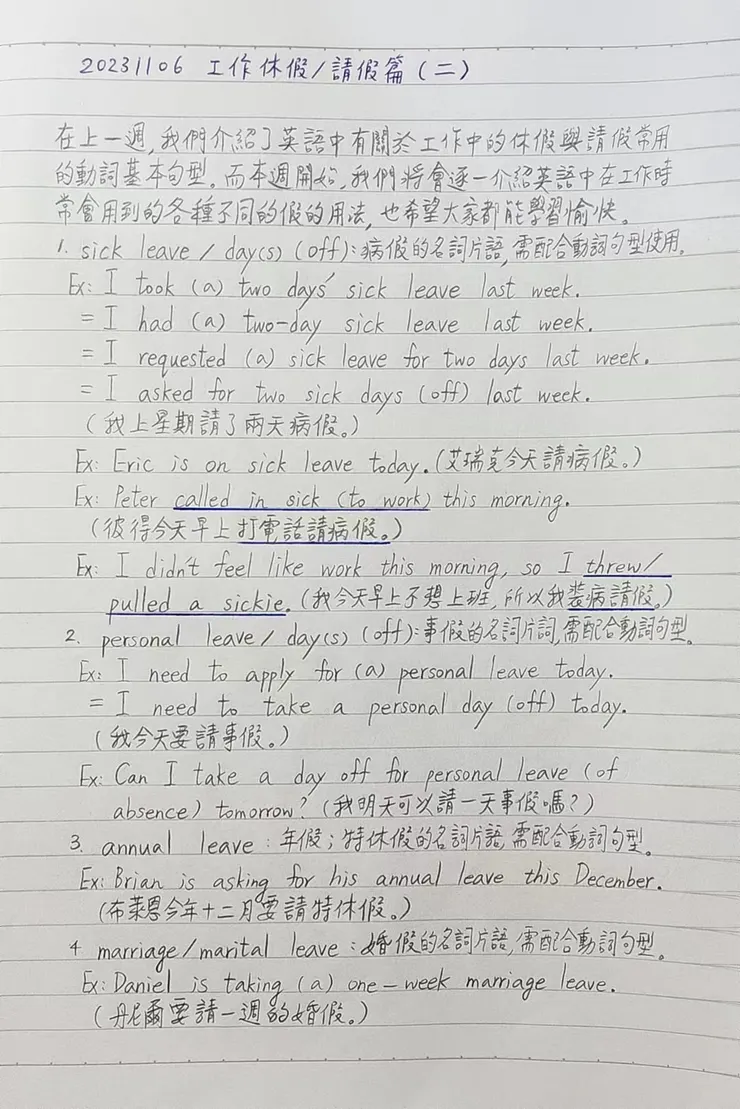 20231106 工作休假/請假篇(二)
在上一週,我們介紹了英語中有關於工作中的休假與請假常用
的動詞基本句型。而本週開始,我們將會逐一介紹英語中在工作時
常會用到的各種不同的假的用法,也希望大家都能學習愉快。
1. sick leave / day(s) (off):病假的名詞片語,需配合動詞句型使用。
Ex: I took (a) two days' sick leave last week.
= I had (a) two-day sick leave last week.
= I requested (a) sick leave for two days last week.
= I asked for two sick days (off) last week.
(我上星期請了兩天病假。)
Ex: Eric is on sick leave today. (艾瑞克今天請病假。)
Ex: Peter called in sick (to work) this morning.
(彼得今天早上打電話請病假。)
Ex: I didn't feel like work this morning, so I threw/
pulled a sickie. (我今天早上不想上班,所以我裝病請假。)
2. personal leave / day(s) (off):事假的名詞片詞,需配合動詞句型。
Ex: I need to apply for (a) personal leave today.
= I need to take a personal day (off) today.
(我今天要請事假。)
Ex: Can I take a day off for personal leave (of
absence) tomorrow? (我明天可以請一天事假嗎?)
3. annual leave : 年假;特休假的名詞片語,需配合動詞句型。
Ex: Brian is asking for his annual leave this December.
(布萊恩今年十二月要請特休假。)
4 marriage/marital leave : 婚假的名詞片語,需配合動詞句型。
Ex: Daniel is taking (a) one-week marriage leave.
(丹尼爾要請一週的婚假。)